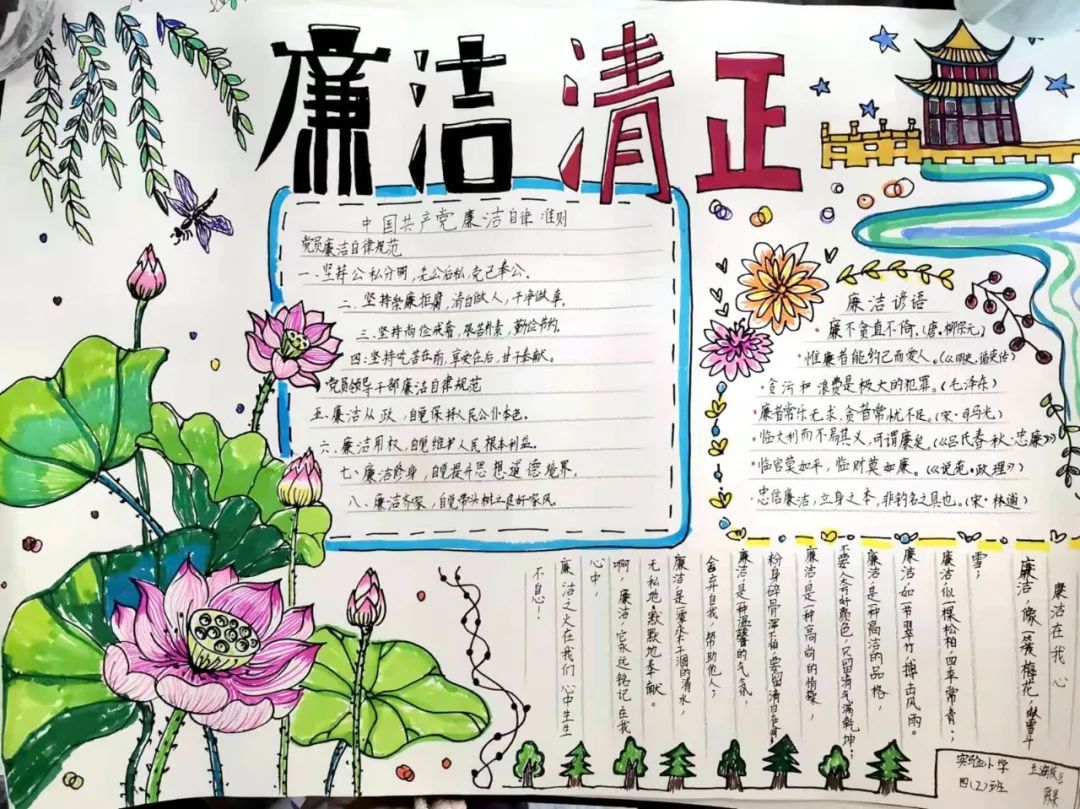 廉洁清正
中国共产党廉洁自律准则
党员廉洁自律规范
一、坚持公私分明，先公后私，克己奉公。
二、坚持崇廉拒腐，清白做人，干净做事。
三、坚持尚俭戒奢，艰苦朴素，勤俭节约。
四：坚持吃苦在前，享受在后，甘于奉献。
党员领导干部廉洁自律规范
五、廉洁从政，自觉保持人民公仆本色。
六、廉洁用权，自觉维护人民根本利益。
七、廉洁修身，自觉提升思想道德境界。
八、廉洁齐家，自觉带头树立良好家风。
廉洁谚语
·廉不贪直不倚。(唐·柳宗元)
·惟廉者能约己而爱人。
·贪污和浪费是极大的犯罪。(毛泽东)
·廉者常乐无求，贪者常忧不足。(宋·司马光)
·临大利而不易其义，可谓廉矣。(《吕氏春秋·忠廉》)
·临官莫如平，临财莫如廉。(《说苑·政理》)
·忠信廉洁，立身之本，非钓名之具也。(宋·林逋)
廉洁在我心
廉洁，像一簇梅花，傲雪斗
雪；
廉洁似一棵松柏，四季常青；
廉洁如一节翠竹，搏击风雨。
廉洁，是一种高洁的品格，
不要人夸好颜色，只留清气满乾坤；
廉洁，是一种高尚的情操，
粉身碎骨浑不怕，要留清白在
廉洁，是一种温馨的气氛，
舍弃自我，帮助他人；
廉洁是一潭永不干涸的清水，
无私地、默默地奉献。
啊，廉洁，它永远铭记在我
心中，
廉洁之火在我们心中生生
不息！
实验小学
四(2)班